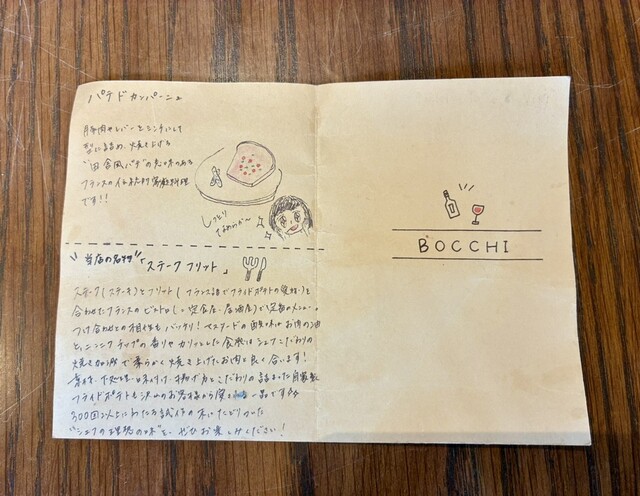 パテ ド カンパーニュ
豚肉やレバーをミンチにして
型に詰め、焼き上げる
"田舎風パテ"の意味のある
フランスの伝統的家庭料理
です!!
しっとり
なめらか〜
当店の名物
「ステーク フリット」
ステーク(ステーキ)とフリット(フランス語でフライドポテトの意味)を
合わせたフランスのビストロ(=定食屋・居酒屋)で定番のメニュー。
つけ合わせとの相性もバッチリ!マスタードの酸味はお肉の油
と、ニンニクチップの香りやカリッとした食感はシェフこだわりの
焼き加減で柔らかく焼き上げたお肉と良く合います!
素材、下処理、味付け、揚げ方とこだわりの詰まった自家製
フライドポテトも沢山のお客様から
300回以上にわたる試作の末にたどりついた
"シェフの理想の味"を、ぜひお楽しみください!
BOCCHI